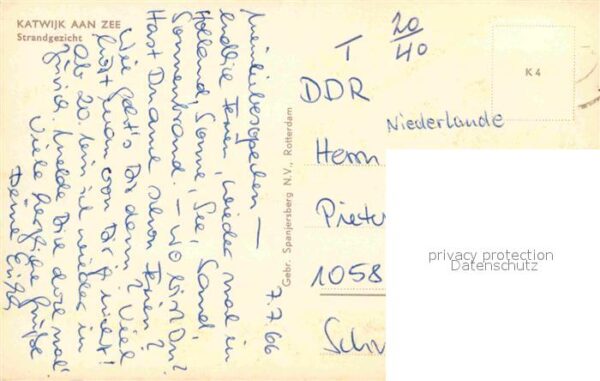 KATWIJK AAN ZEE
Strandgezicht
7.7.66
Mein liebes
endlich Ferien, wieder mal in
Holland, Sonne, See, Sand
Sonnenbrand. – Wo bist Du?
Hast Du auch schon Ferien?
Wie geht's Dir denn? Viel
hört man von Dir ja nicht!
Ab 20. bin ich wieder in
Melde Dich doch mal
Viele herzliche Grüße
Deine
Gebr. Spanjersberg N.V., Rotterdam
T 20/40
K 4
DDR
Niederlande
Herrn
Pieter
1058
Schw
privacy protection
Datenschutz